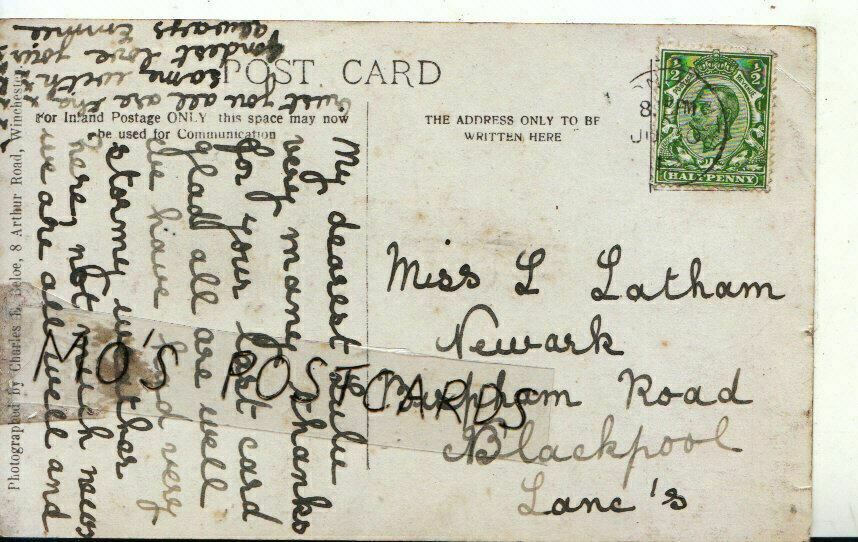 POST CARD
For Inland Postage ONLY this space may now
be used for Communication
THE ADDRESS ONLY TO BE
WRITTEN HERE
½ ½
HALFPENNY
My dearest Lulu
very many thanks
for your last card
glad all are well
We have had very
stormy weather
here, not much news
we are all well and
trust you all are the
same with
fondest love yours
always Emmie
Miss L Latham
Newark
Road
Blackpool
Lanc's
MO'S POSTCARDS
Photographed by Charles E. Beloe, 8 Arthur Road, Winchester